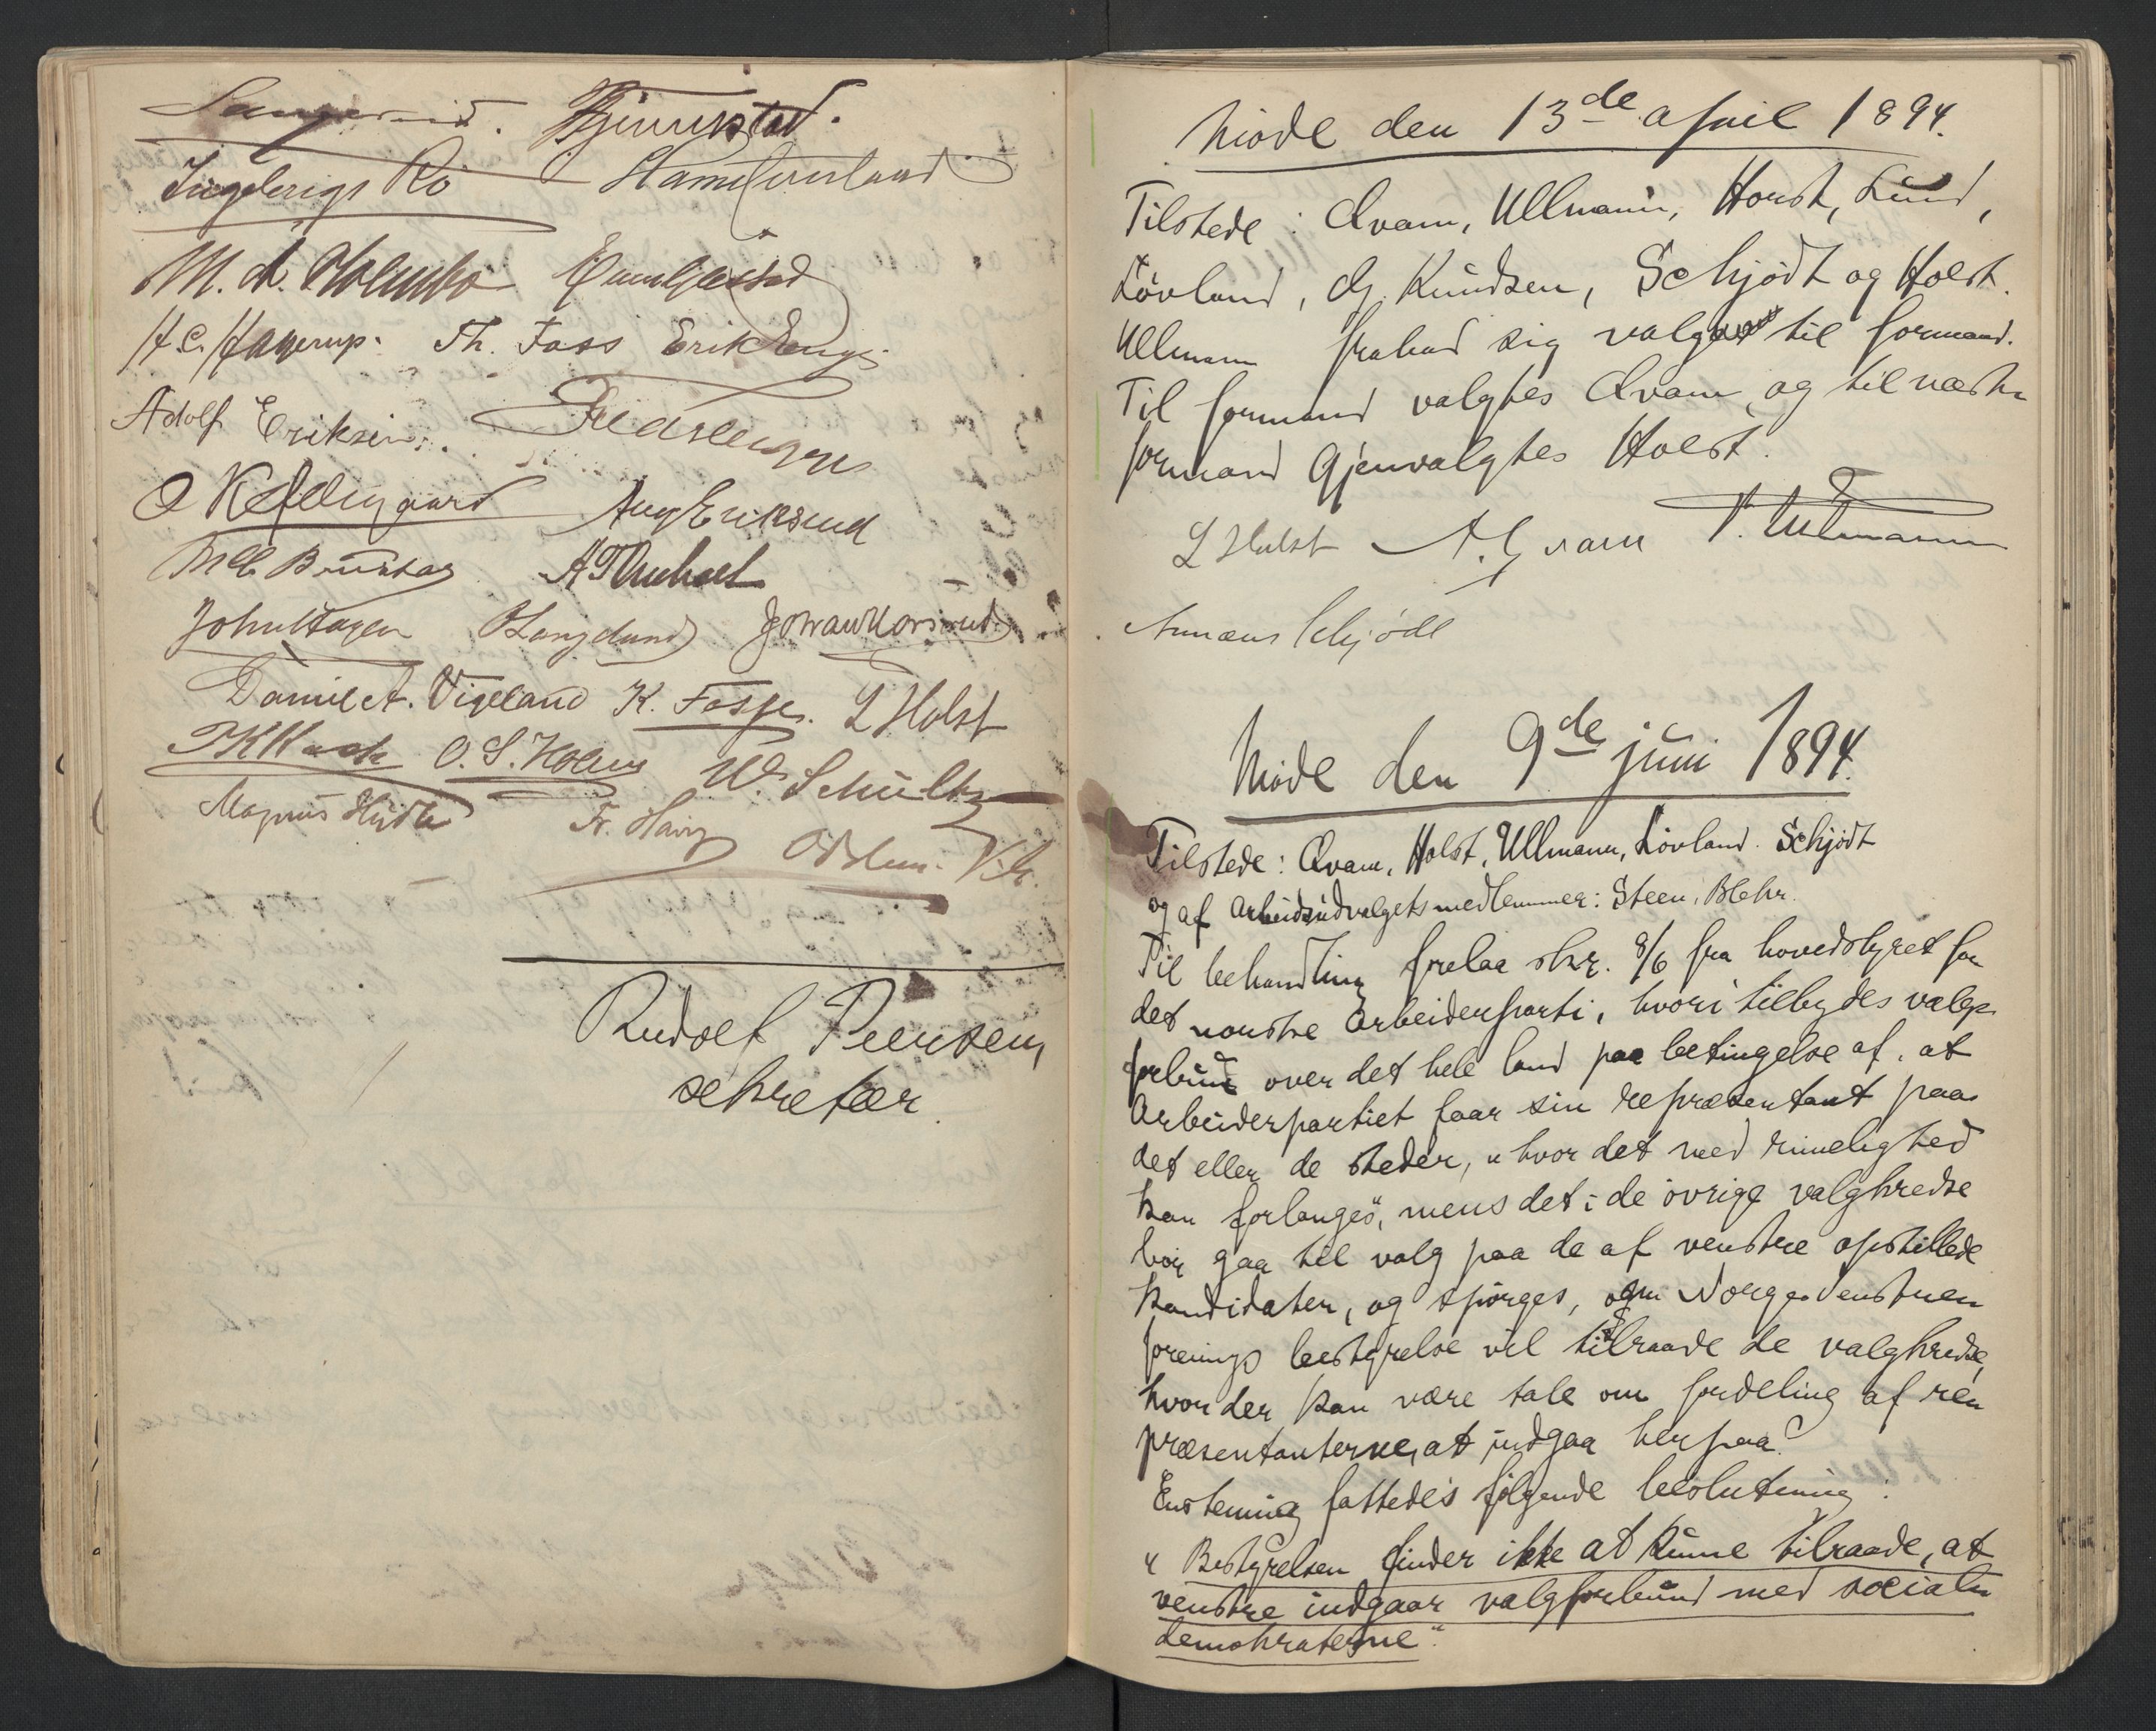 Ingebrigt Rö
M. A. Holmbo
H. C. Hagerup. Th. Foss Erik Enge
Adolf Eriksen.
Aug Eriksrud
John Hagen O Langelund Johan Horsrud
Daniel A. Vigeland K. Fosse. L Holst
O. S. Holm W. Schultz
Magnus Fr.
Rudolf Peersen,
sekretær.
Möde den 13de april 1894.
Tilstede: Qvam, Ullmann, Horst, Lund,
Lövland, G. Knudsen, Schjödt og Holst.
Ullmann frabad sig valg til formand.
Til formand valgtes Qvam og til næst-
formand gjenvalgtes Holst.
L Holst A. Qvam V. Ullmann
Annæus Schjödt
Möde den 9de juni 1894.
Tilstede: Qvam, Holst, Ullmann, Lövland. Schjödt
og af arbeidsudvalgets medlemmer: Steen, Blehr.
Til behandling forelaa skr. 8/6 fra hovedstyret for
det norske Arbeiderparti, hvori tilbydes valg-
forbund over det hele land paa betingelse af, at
Arbeiderpartiet faar sin repræsentant paa
det eller de steder, „hvor det med rimelighed
kan forlanges“, mens det i de övrige valgkredse
bör gaa til valg paa de af venstre opstillede
kandidater, og spörges, om Norges Venstrefor
forenings bestyrelse vil tilraade de valgkredse,
hvor der kan være tale om fordeling af re-
præsentanterne, at indgaa herpaa?
Enstemmig fattedes følgende beslutning:
„Bestyrelsen finder ikke at kunne tilraade, at
venstre indgaar valgforbund med social-
demokraterne“.